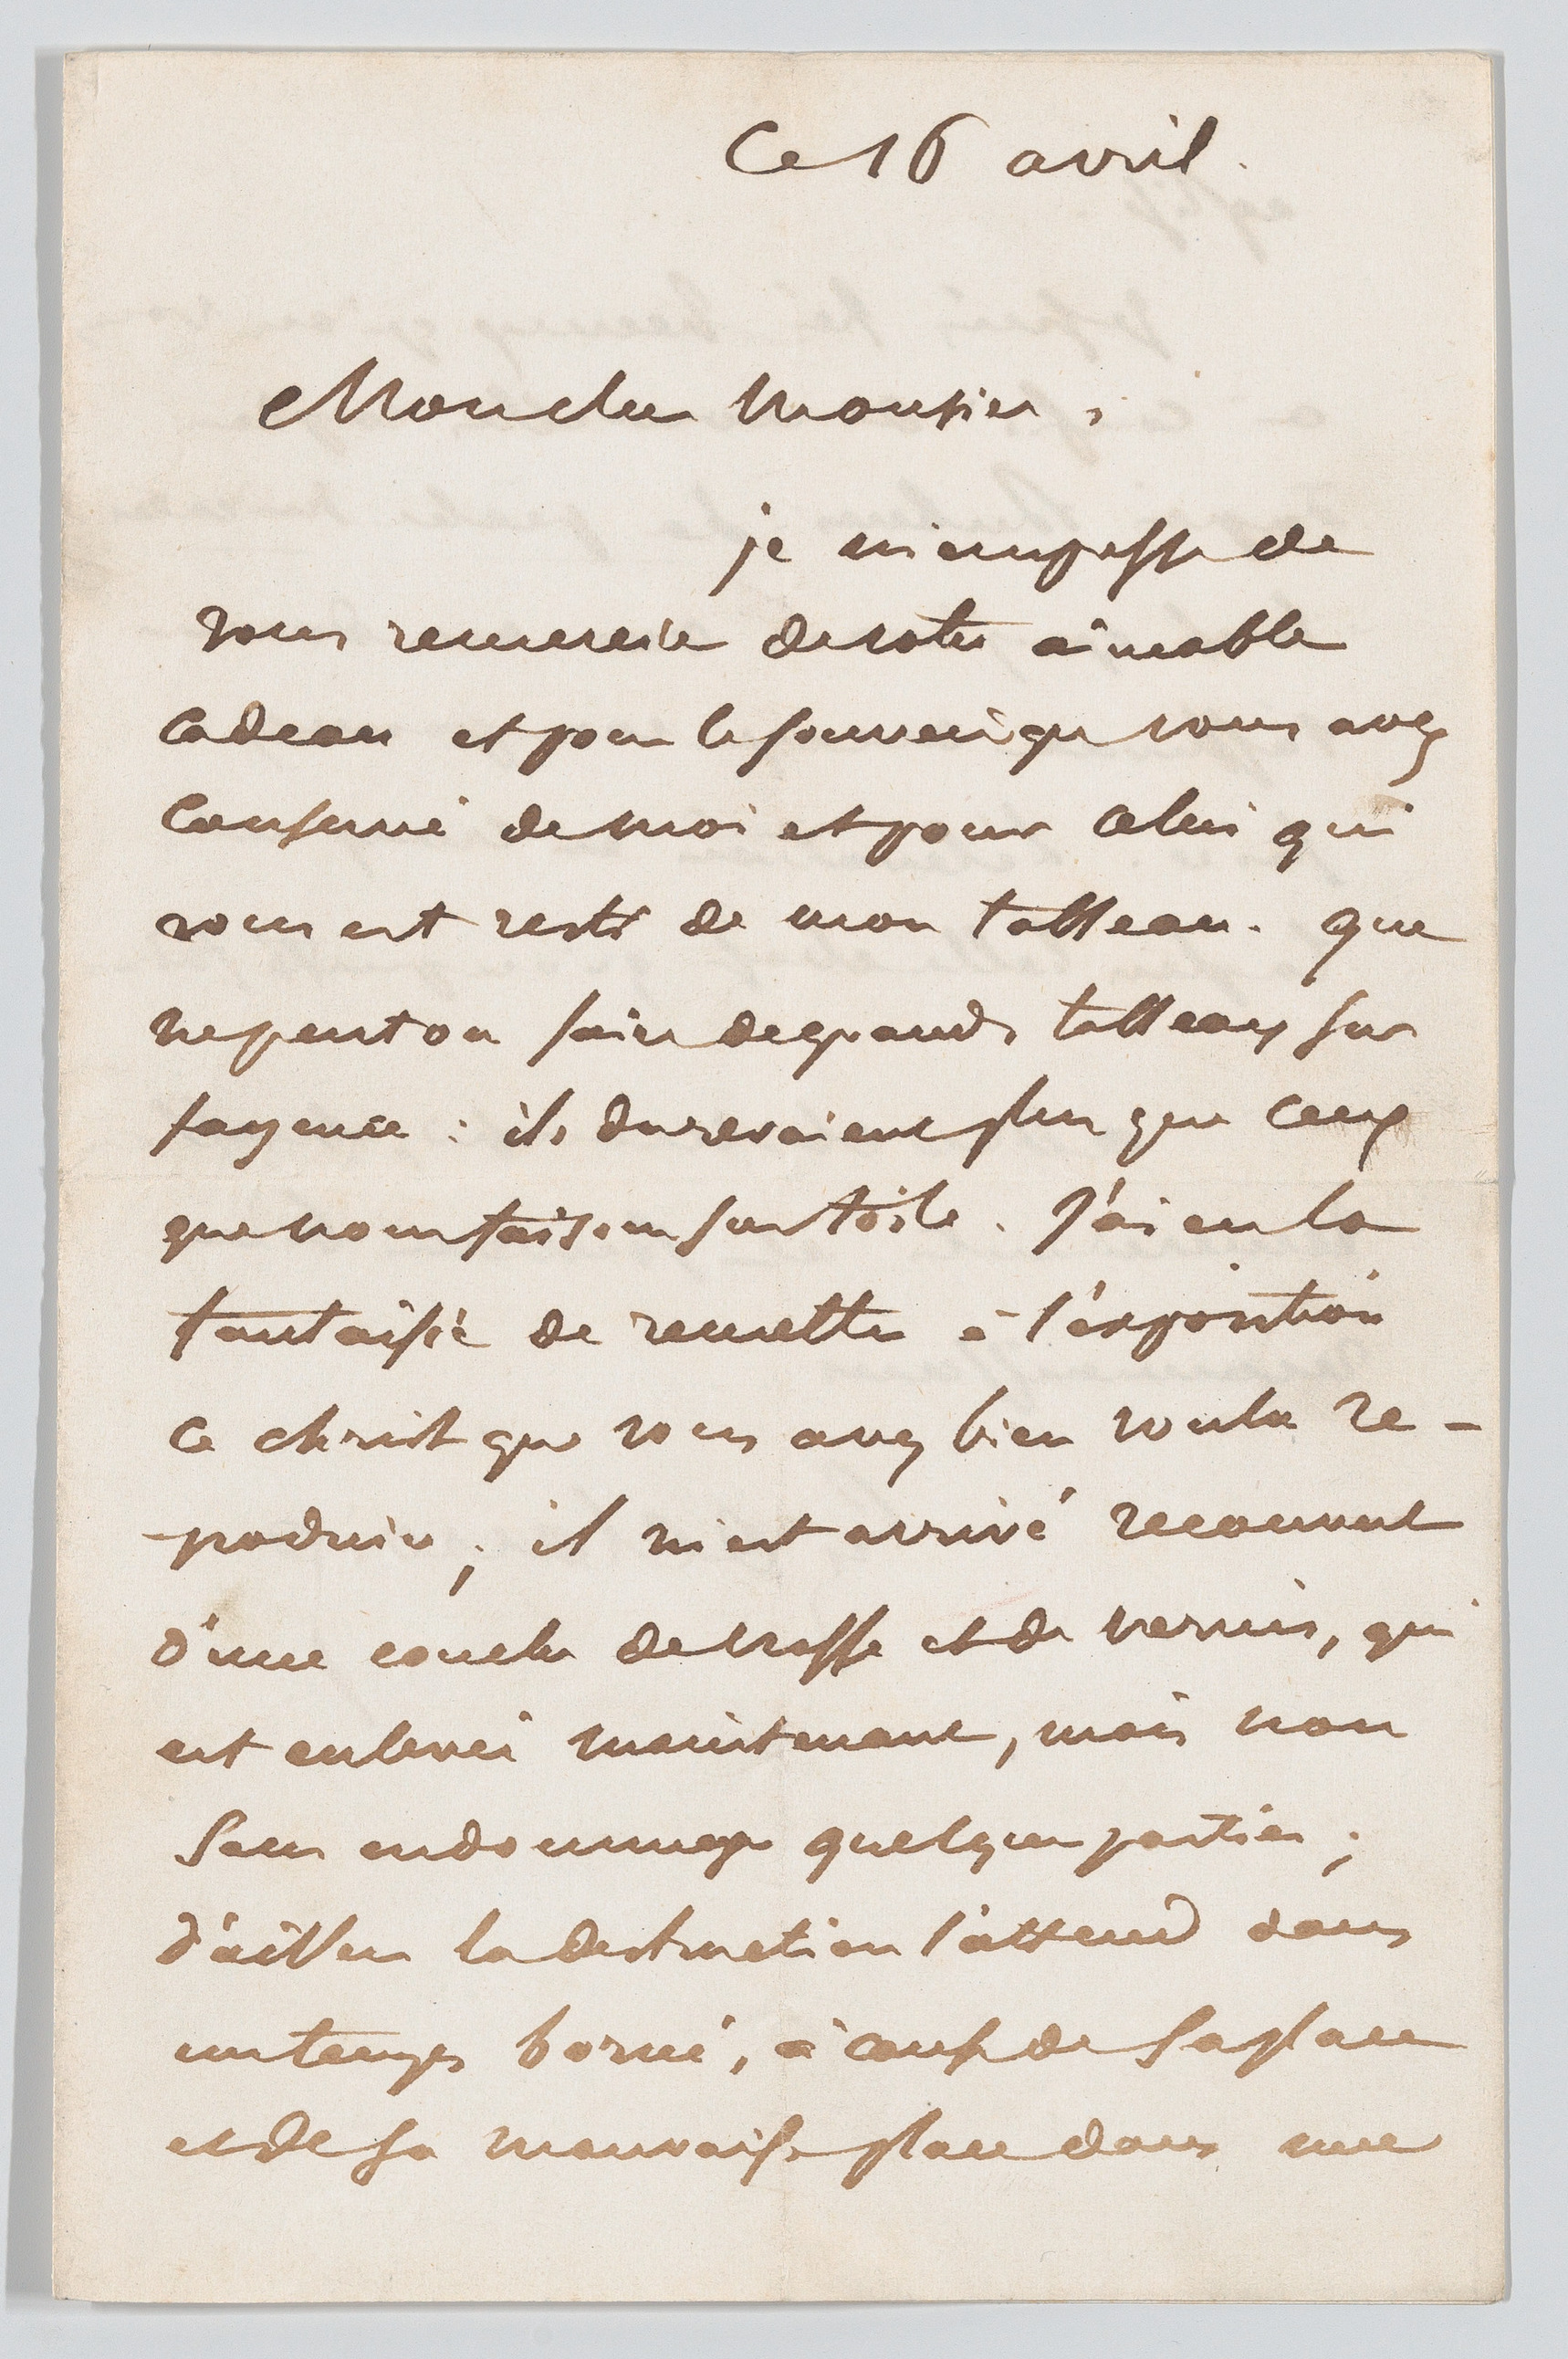 Ce 16 avril.
Mon cher Monsieur,
je m'empresse de
vous remercier de votre aimable
cadeau et pour le souvenir que vous avez
conservé de moi et pour celui qui
vous est resté de mon tableau. que
ne peut on faire de grands tableaux sur
fayence : ils dureraient plus que ceux
que nous faisons sur toile. J'ai eu la
fantaisie de remettre à l'exposition
ce christ que vous avez bien voulu re-
-produire ; il m'est arrivé recouvert
d'une couche de crasse et de vernis, qui
est enlevée maintenant, mais non
sans endommager quelques parties ;
d'ailleurs la destruction l'attend dans
un temps borné, à cause de sa place
et de sa mauvaise place dans une